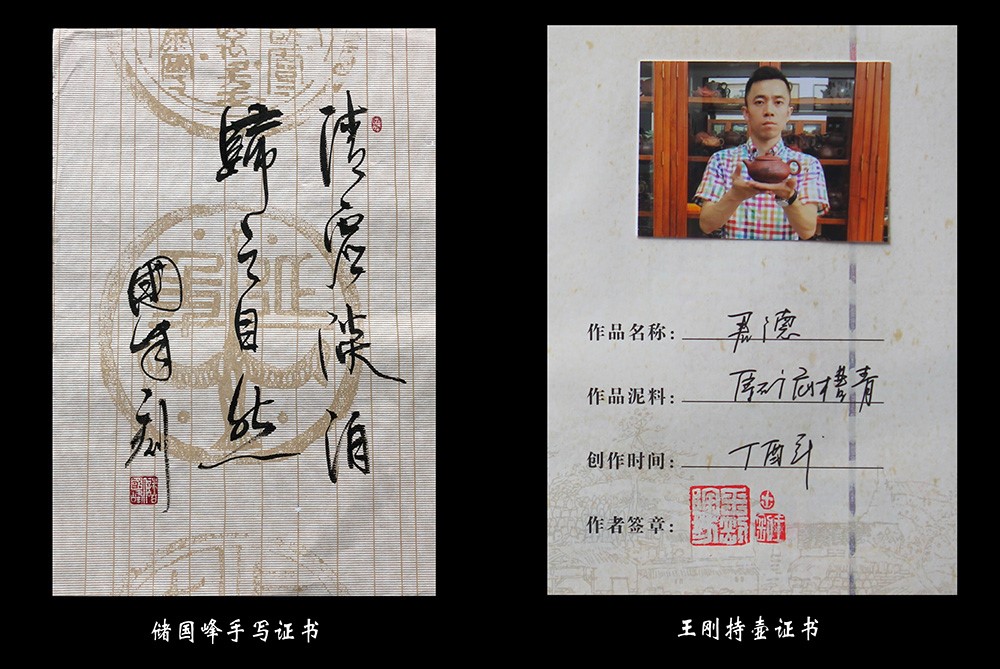 清虚淡泊
歸之自然
國峰刻
作品名称：君德
作品泥料：原矿底槽青
创作时间：丁酉年
作者签章：
储国峰手写证书
王刚持壶证书